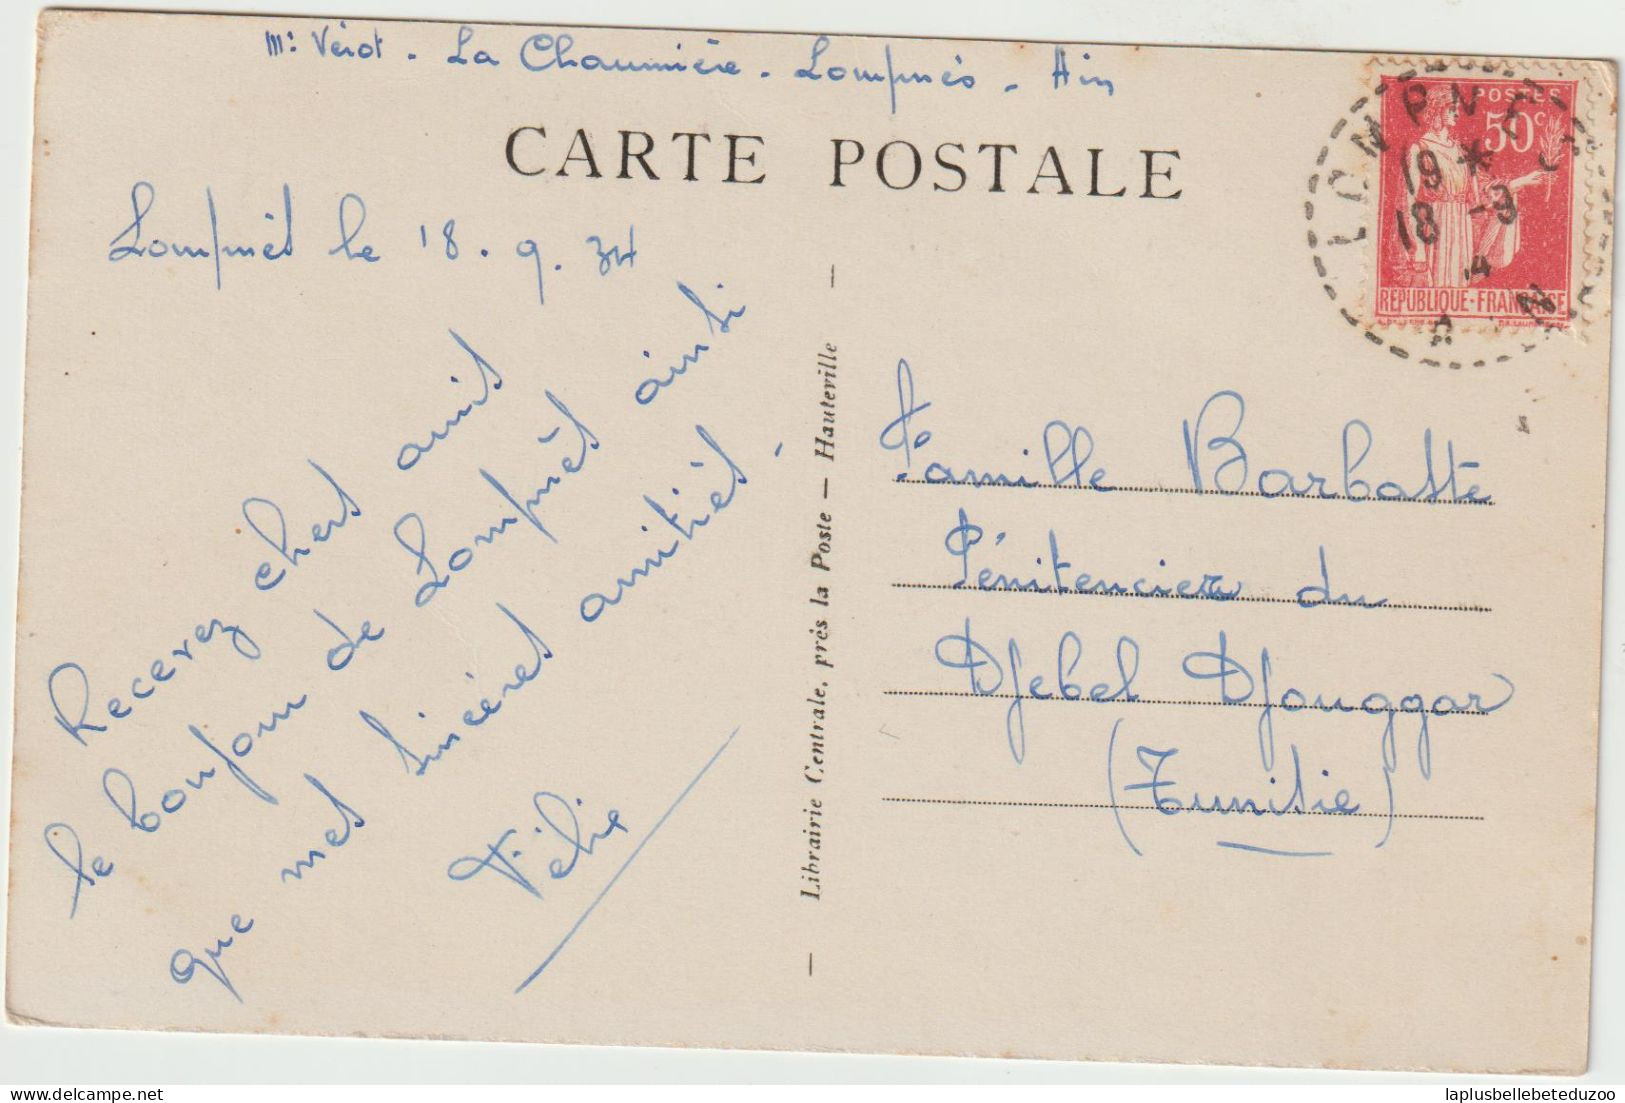 Mr Vérot - La Chaumière - Lompnès - Ain
CARTE POSTALE
Lompnès le 18.9.34
Recevez chers amis
le bonjour de Lompnès ainsi
que mes sincères amitiés -
Félix
Librairie Centrale, près la Poste — Hauteville
POSTES
50c
REPUBLIQUE-FRANÇAISE
LOMPNES
19 *
18 -9
4
AIN
Famille Barbotte
Pénitencier du
Djebel Djouggar
(Tunisie)
laplusbellebeteduzoo